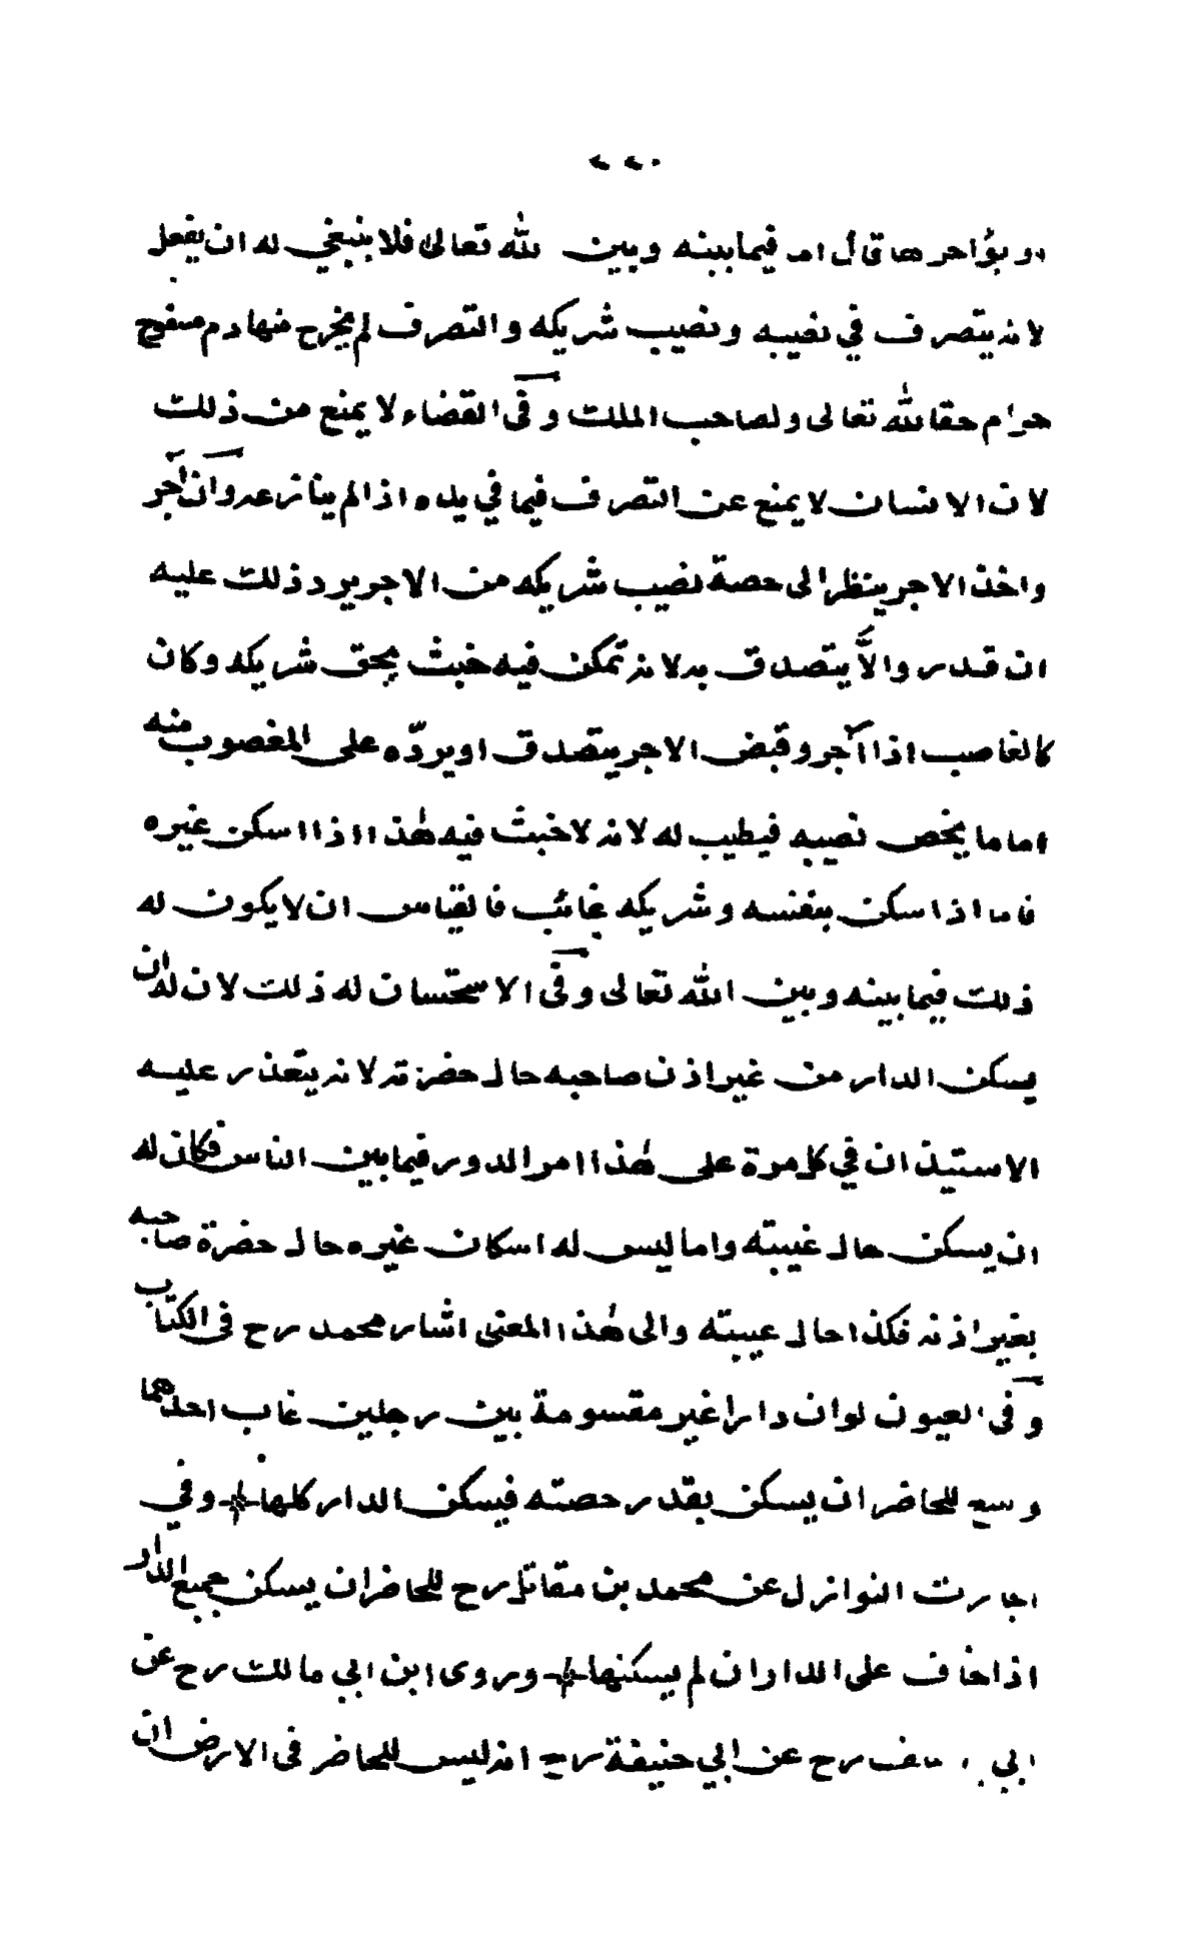 ٢٢٠
او يؤاجرها قال اما فيما بينه وبين الله تعالى فلا ينبغي له ان يفعل
لانه يتصرف في نصيبه ونصيب شريكه والتصرف لم يخرج منها
حرام حقا لله تعالى ولصاحب الملك وفى القضاء لا يمنع من ذلك
لان الانسان لا يمنع عن التصرف فيما في يده اذا لم ينازعه وان آجر
واخذ الاجر ينظر الى حصة نصيب شريكه من الاجر يرد ذلك عليه
ان قدر والّا يتصدق به لانه تمكن فيه خبث بحق شريكه وكان
كالغاصب اذا آجر وقبض الاجر يتصدق او يردّه على المغصوب منه
اما ما يخص نصيبه فيطيب له لانه لا خبث فيه هٰذا اذا اسكن غيره
فاما اذا سكن بنفسه وشريكه غائب فالقياس ان لا يكون له
ذلك فيما بينه وبين الله تعالى وفى الاستحسان له ذلك لان له ان
يسكن الدار من غير اذن صاحبه حال حضرته لانه يتعذر عليه
الاستيذان في كل مرة على هٰذا امر الدور فيما بين الناس فكان له
ان يسكن حال غيبته واما ليس له اسكان غيره حال حضرة صاحبه
بغير اذنه فكذا حال غيبته والى هٰذا المعنى اشار محمد رح فى الكتاب
وفى العيون لو ان دارا غير مقسومة بين رجلين غاب احدهما
وسع للحاضر ان يسكن بقدر حصته فيسكن الدار كلها وفي
اجارت النوازل عن محمد بن مقاتل رح للحاضر ان يسكن جميع الدار
اذا خاف على الدار ان لم يسكنها وروى ابن ابي مالك رح عن
ابي يوسف رح عن ابي حنيفة رح انه ليس للحاضر فى الارض ان